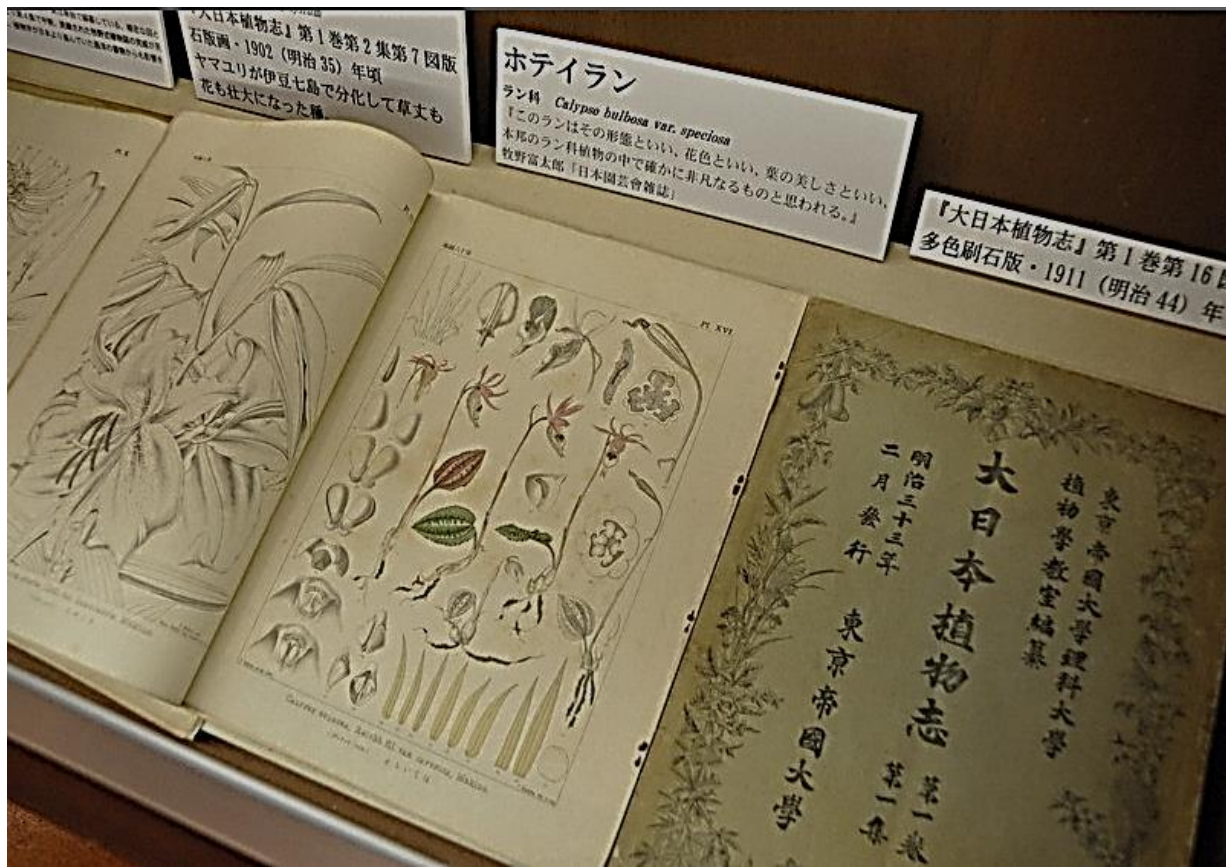 『大日本植物志』第1巻第2集第7図版
石版画・1902（明治35）年頃
ヤマユリが伊豆七島で分化して草丈も
花も壮大になった種。
ホテイラン
ラン科 Calypso bulbosa var. speciosa
『このランはその形態といい、花色といい、葉の美しさといい、
本邦のラン科植物の中で確かに非凡なるものと思われる。』
牧野富太郎「日本園芸會雑誌」
『大日本植物志』第1巻第16
多色刷石版・1911（明治44）年
Pl. XVI
東京帝國大學理科大學
植物學教室編纂
大日本植物志 第一巻
第一集
明治三十三年
二月發行
東京帝國大學